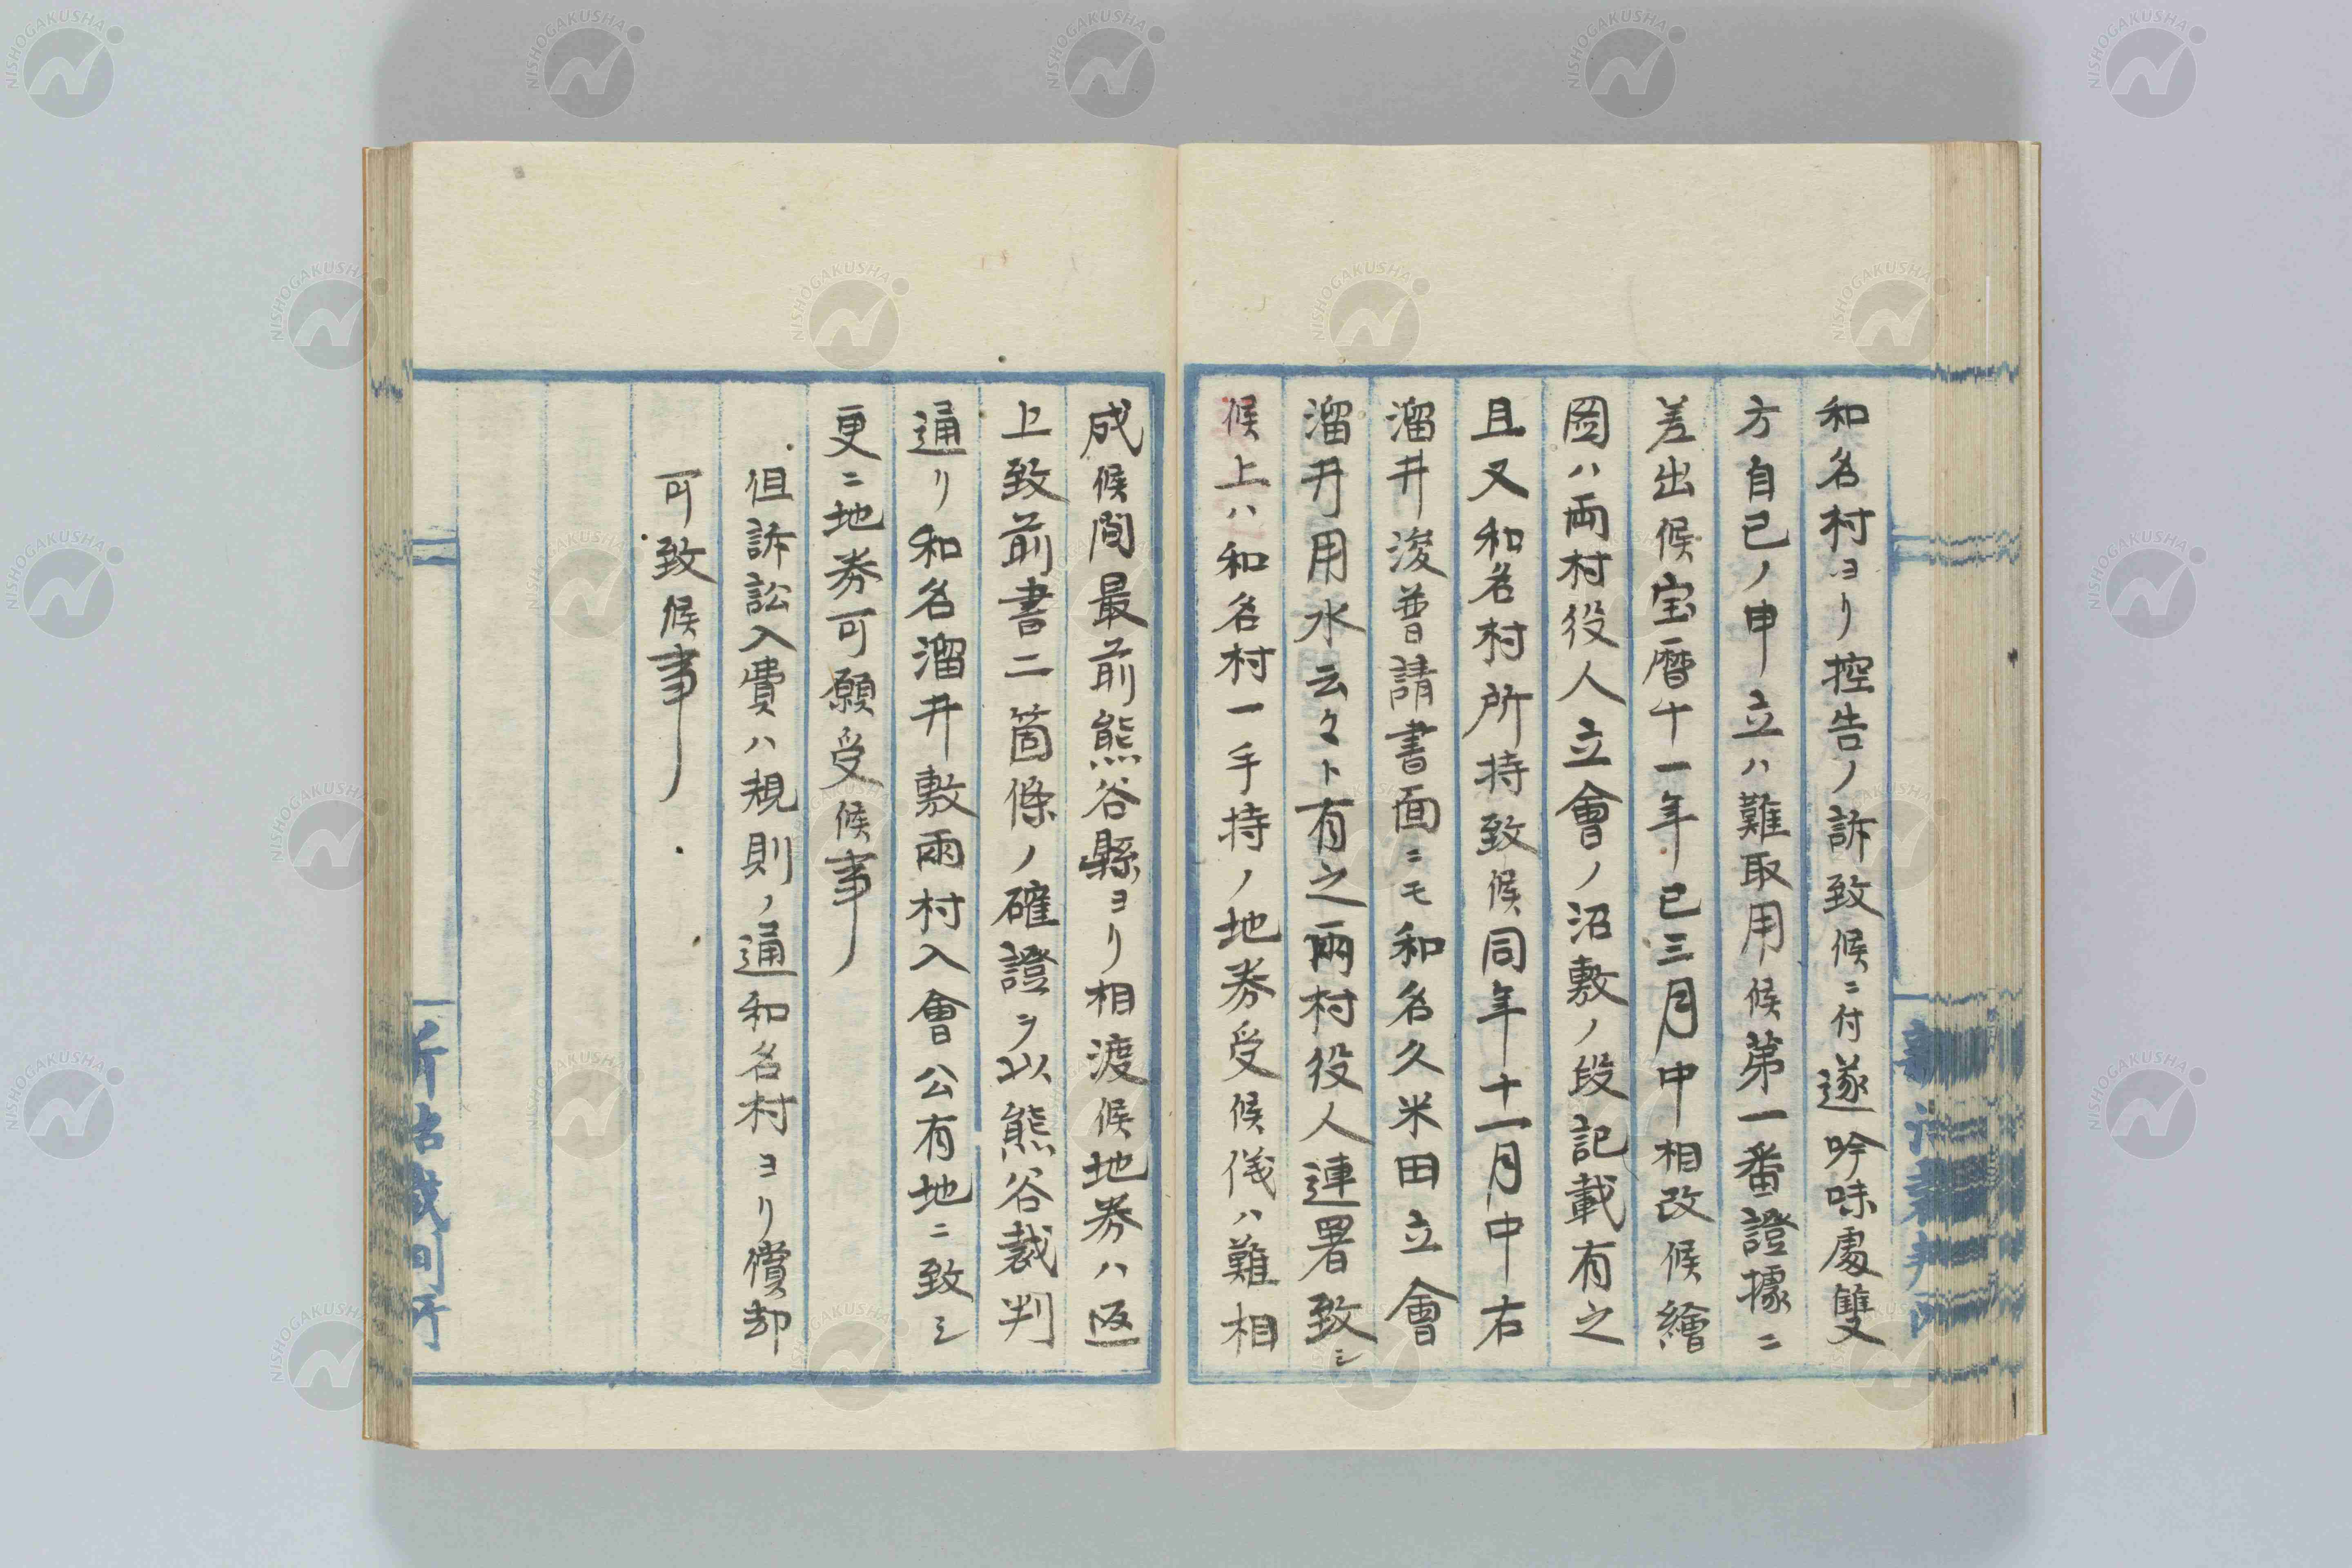 和名村ヨリ控告ノ訴致候ニ付遂吟味處雙
方自己ノ申立ハ難取用候第一番證據ニ
差出候宝暦十一年巳三月中相改候繪
圖ハ両村役人立會ノ沼敷ノ段記載有之
且又和名村所持致候同年十一月中右
溜井浚普請書面ニモ和名久米田立會
溜井用水云々ト有之兩村役人連署致シ
候上ハ和名村一手持ノ地券受候儀ハ難相
成候間最前熊谷縣ヨリ相渡候地券ハ返
上致前書二箇條ノ確證ヲ以熊谷裁判
通リ和名溜井敷兩村入會公有地ニ致シ
更ニ地券可願受候事
但訴訟入費ハ規則ノ通和名村ヨリ償却
可致候事
NISHOGAKUSHA